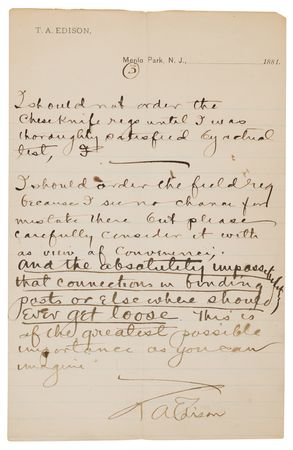 T. A. EDISON,
Menlo Park, N. J., 1881.
5
I should not order the
Cheseknife regs until I was
thoroughly satisfied by actual
test,
I should order the field reg
because I see no chance for
mistake there but please
carefully consider it with
as view of Convenence,
and the absolutility impossibility
that connections in binding
posts or Else where should
EVER get loose. This is
of the greatest possible
importance as you can
imagine
T A Edison